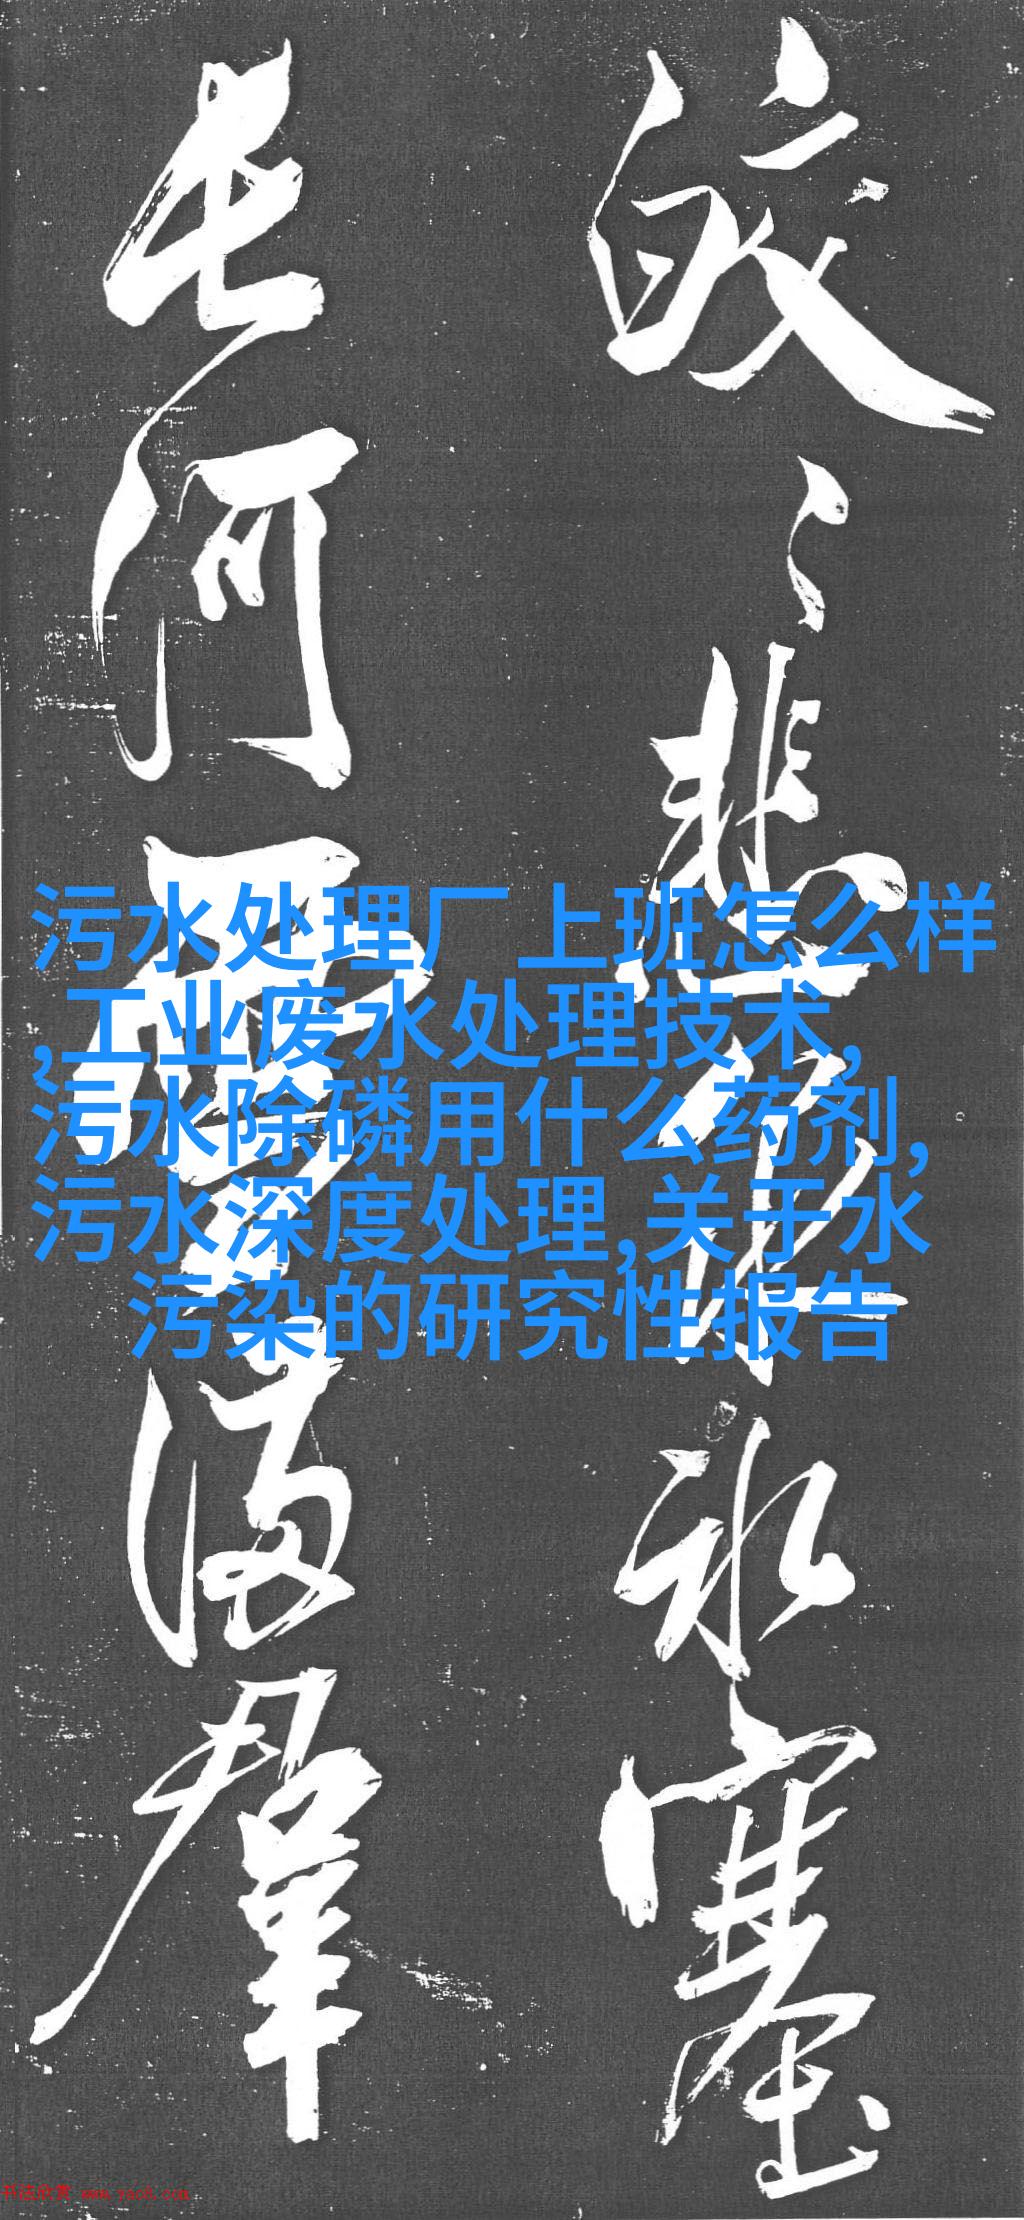 皎々悲
氷塞
長河雪滿羣
污水处理厂上班怎么样
,工业废水处理技术,
污水除磷用什么药剂,
污水深度处理,关于水
污染的研究性报告
书法欣赏 www.yac8.com